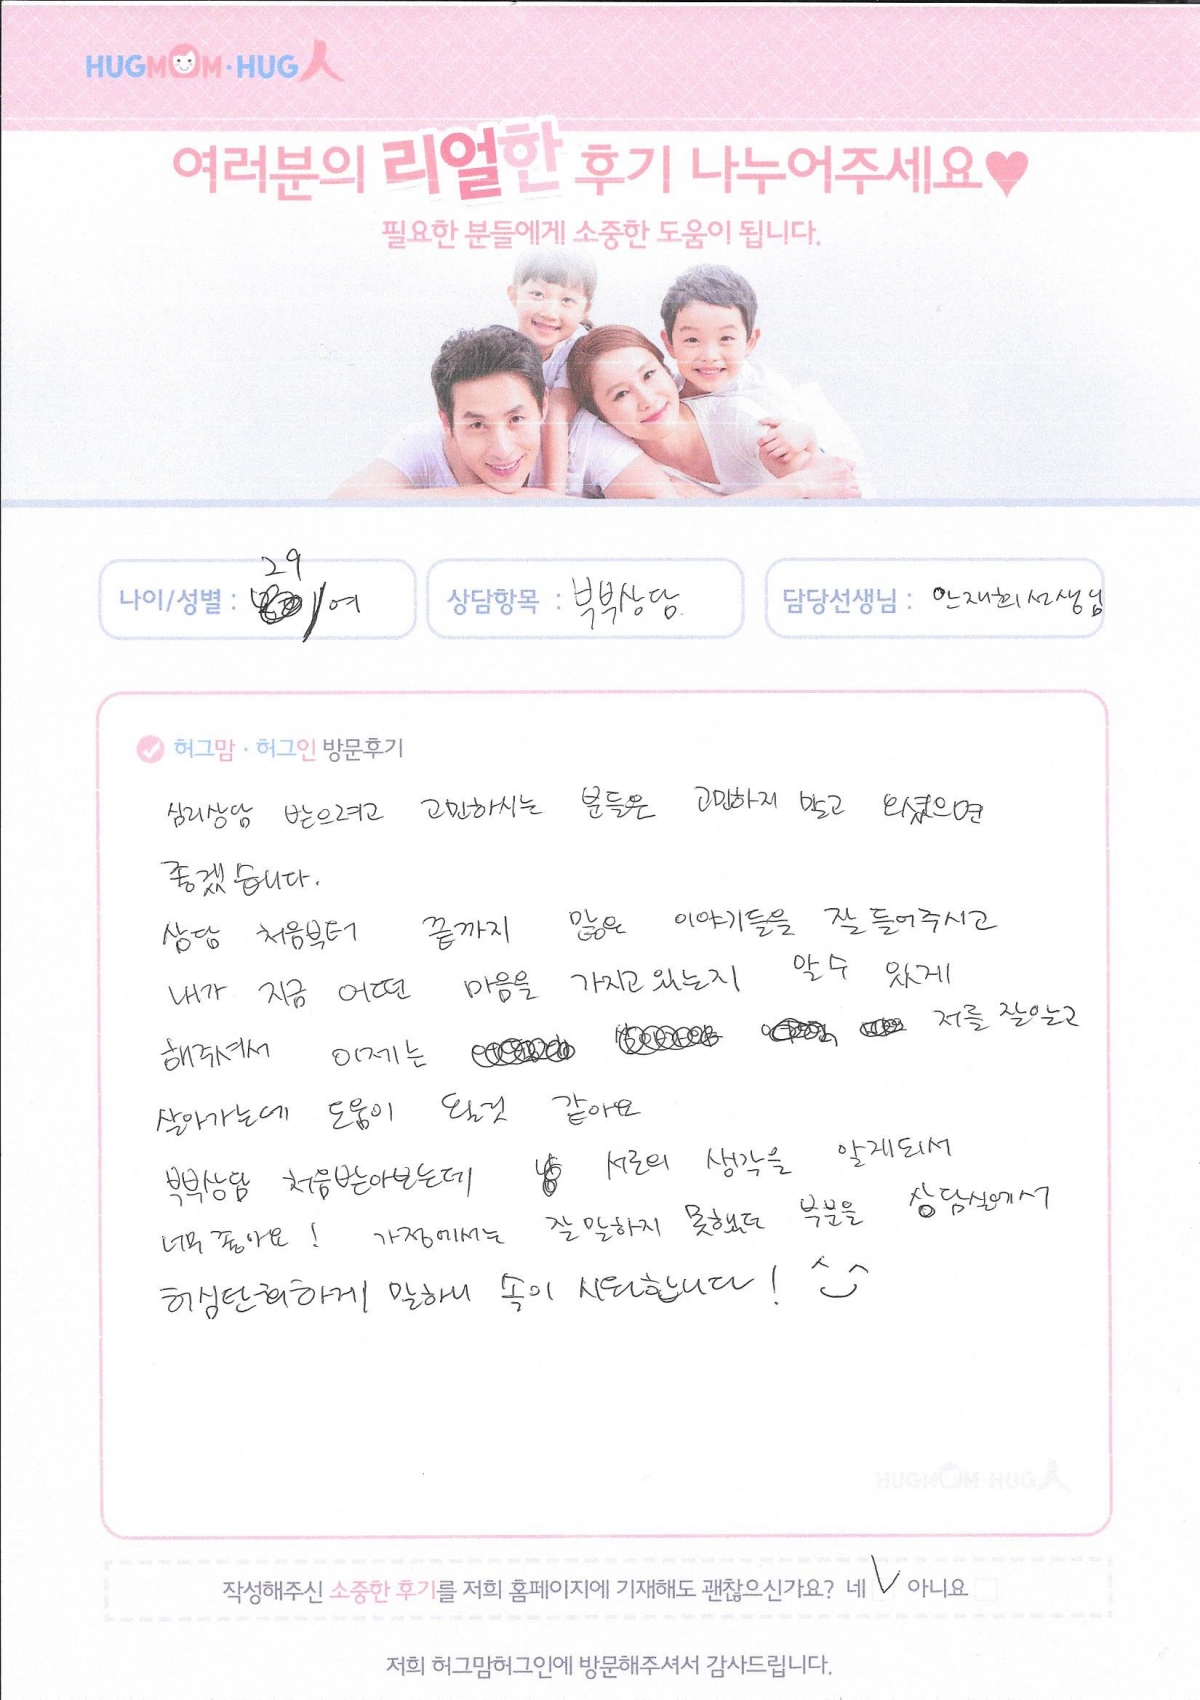 HUGMOM·HUG人
여러분의 리얼한 후기 나누어주세요♥
필요한 분들에게 소중한 도움이 됩니다.
29
나이/성별 : /여
상담항목 : 부부상담
담당선생님 : 안재희선생님
허그맘 · 허그인 방문후기
심리상담 받으려고 고민하시는 분들은 고민하지 말고 오셨으면
좋겠습니다.
상담 처음부터 끝까지 많은 이야기들을 잘 들어주시고
내가 지금 어떤 마음을 가지고 있는지 알수 있게
해주셔서 이제는 저를 잘알고
살아가는데 도움이 될것 같아요
부부상담 처음받아보는데 서로의 생각을 알게되서
너무 좋아요! 가정에서는 잘 말하지 못했던 부분을 상담실에서
허심탄회하게 말하니 속이 시원합니다!
HUGMOM·HUG人
작성해주신 소중한 후기를 저희 홈페이지에 기재해도 괜찮으신가요? 네 ✓ 아니요 □
저희 허그맘허그인에 방문해주셔서 감사드립니다.